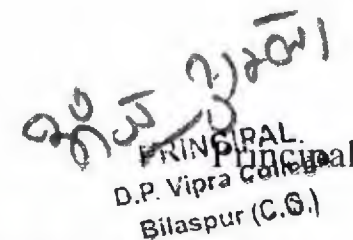 PRINCIPAL
Principal
D.P. Vipra College
Bilaspur (C.G.)